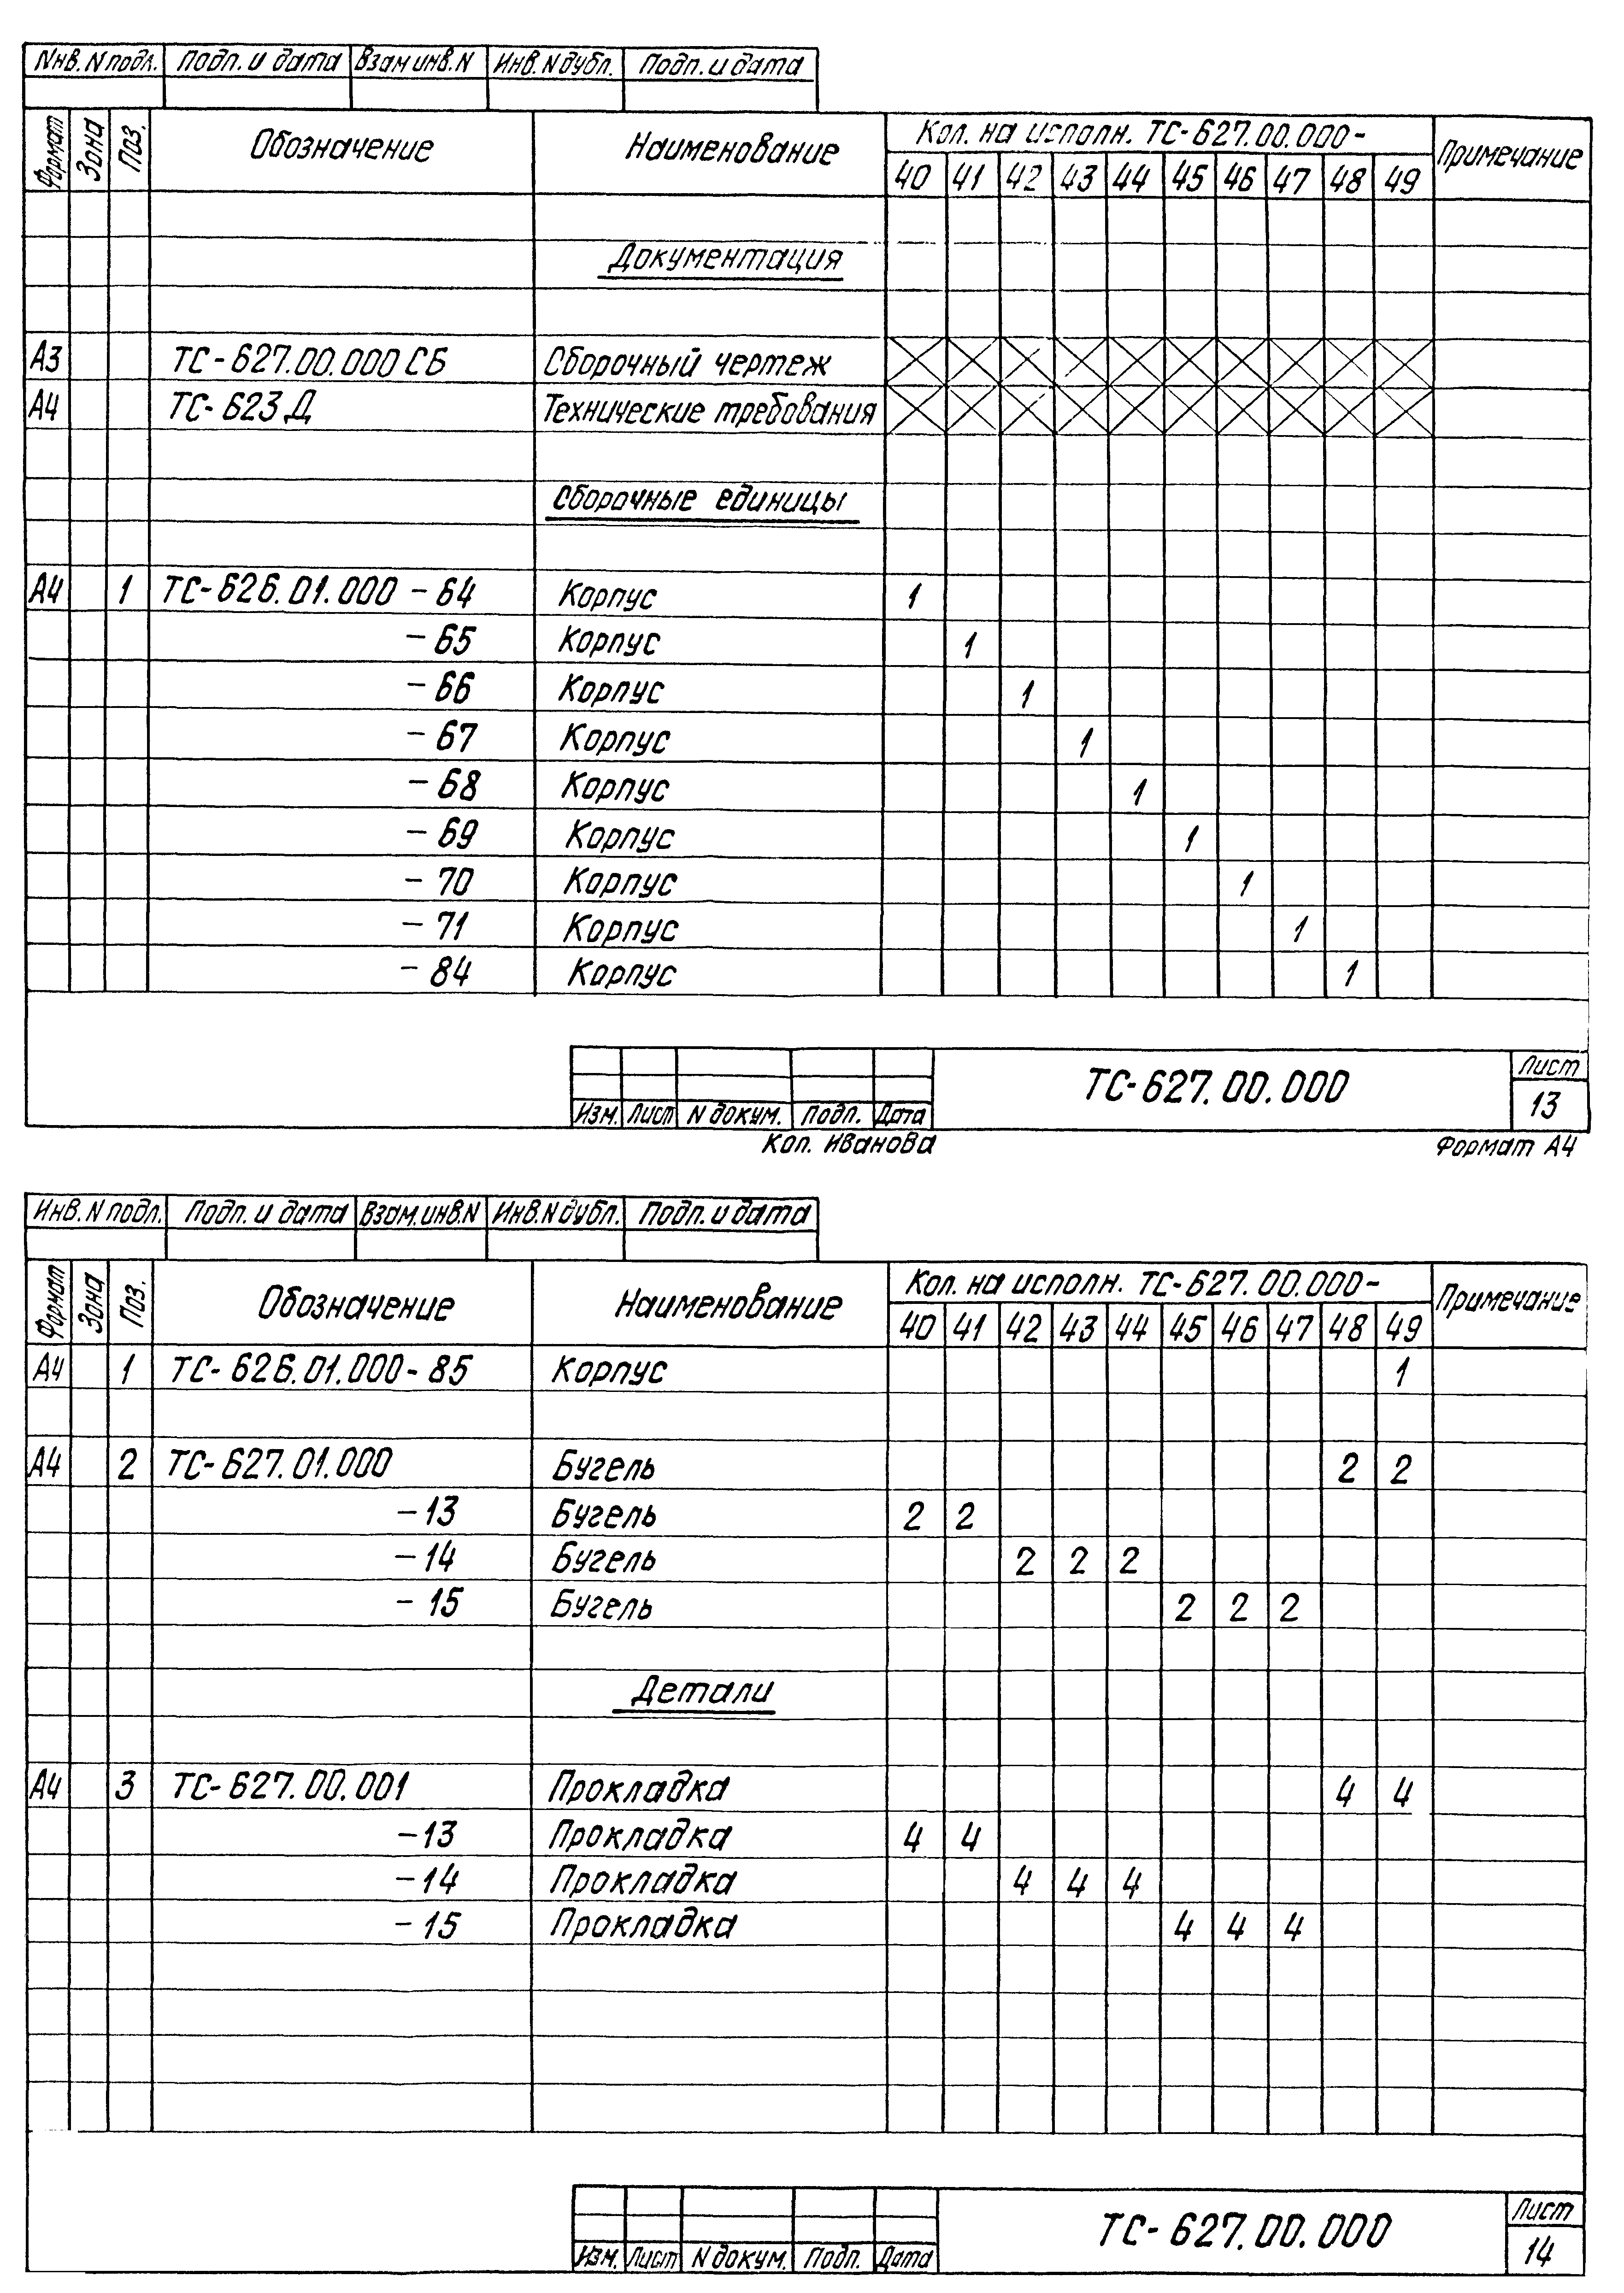 Инв. N подл. Подп. и дата Взам инв. N Инв. N дубл. Подп. и дата
Формат Зона Поз. Обозначение Наименование Кол. на исполн. ТС-627.00.000- Примечание
40 41 42 43 44 45 46 47 48 49
Документация
А3 ТС-627.00.000 СБ Сборочный чертеж
А4 ТС-623 Д Технические требования
Сборочные единицы
А4 1 ТС-626.01.000 - 64 Корпус 1
- 65 Корпус 1
- 66 Корпус 1
- 67 Корпус 1
- 68 Корпус 1
- 69 Корпус 1
- 70 Корпус 1
- 71 Корпус 1
- 84 Корпус 1
ТС-627.00.000 Лист
13
Изм. Лист N докум. Подп. Дата
Коп. Иванова Формат А4
Инв. N подл. Подп. и дата Взам. инв. N Инв. N дубл. Подп. и дата
Формат Зона Поз. Обозначение Наименование Кол. на исполн. ТС-627.00.000- Примечание
40 41 42 43 44 45 46 47 48 49
А4 1 ТС-626.01.000-85 Корпус 1
А4 2 ТС-627.01.000 Бугель 2 2
-13 Бугель 2 2
-14 Бугель 2 2 2
-15 Бугель 2 2 2
Детали
А4 3 ТС-627.00.001 Прокладка 4 4
-13 Прокладка 4 4
-14 Прокладка 4 4 4
-15 Прокладка 4 4 4
ТС-627.00.000 Лист
14
Изм. Лист N докум. Подп. Дата